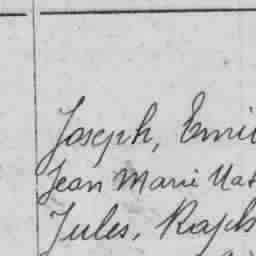 Joseph, Emi
Jean Marie Nat
Jules, Raph